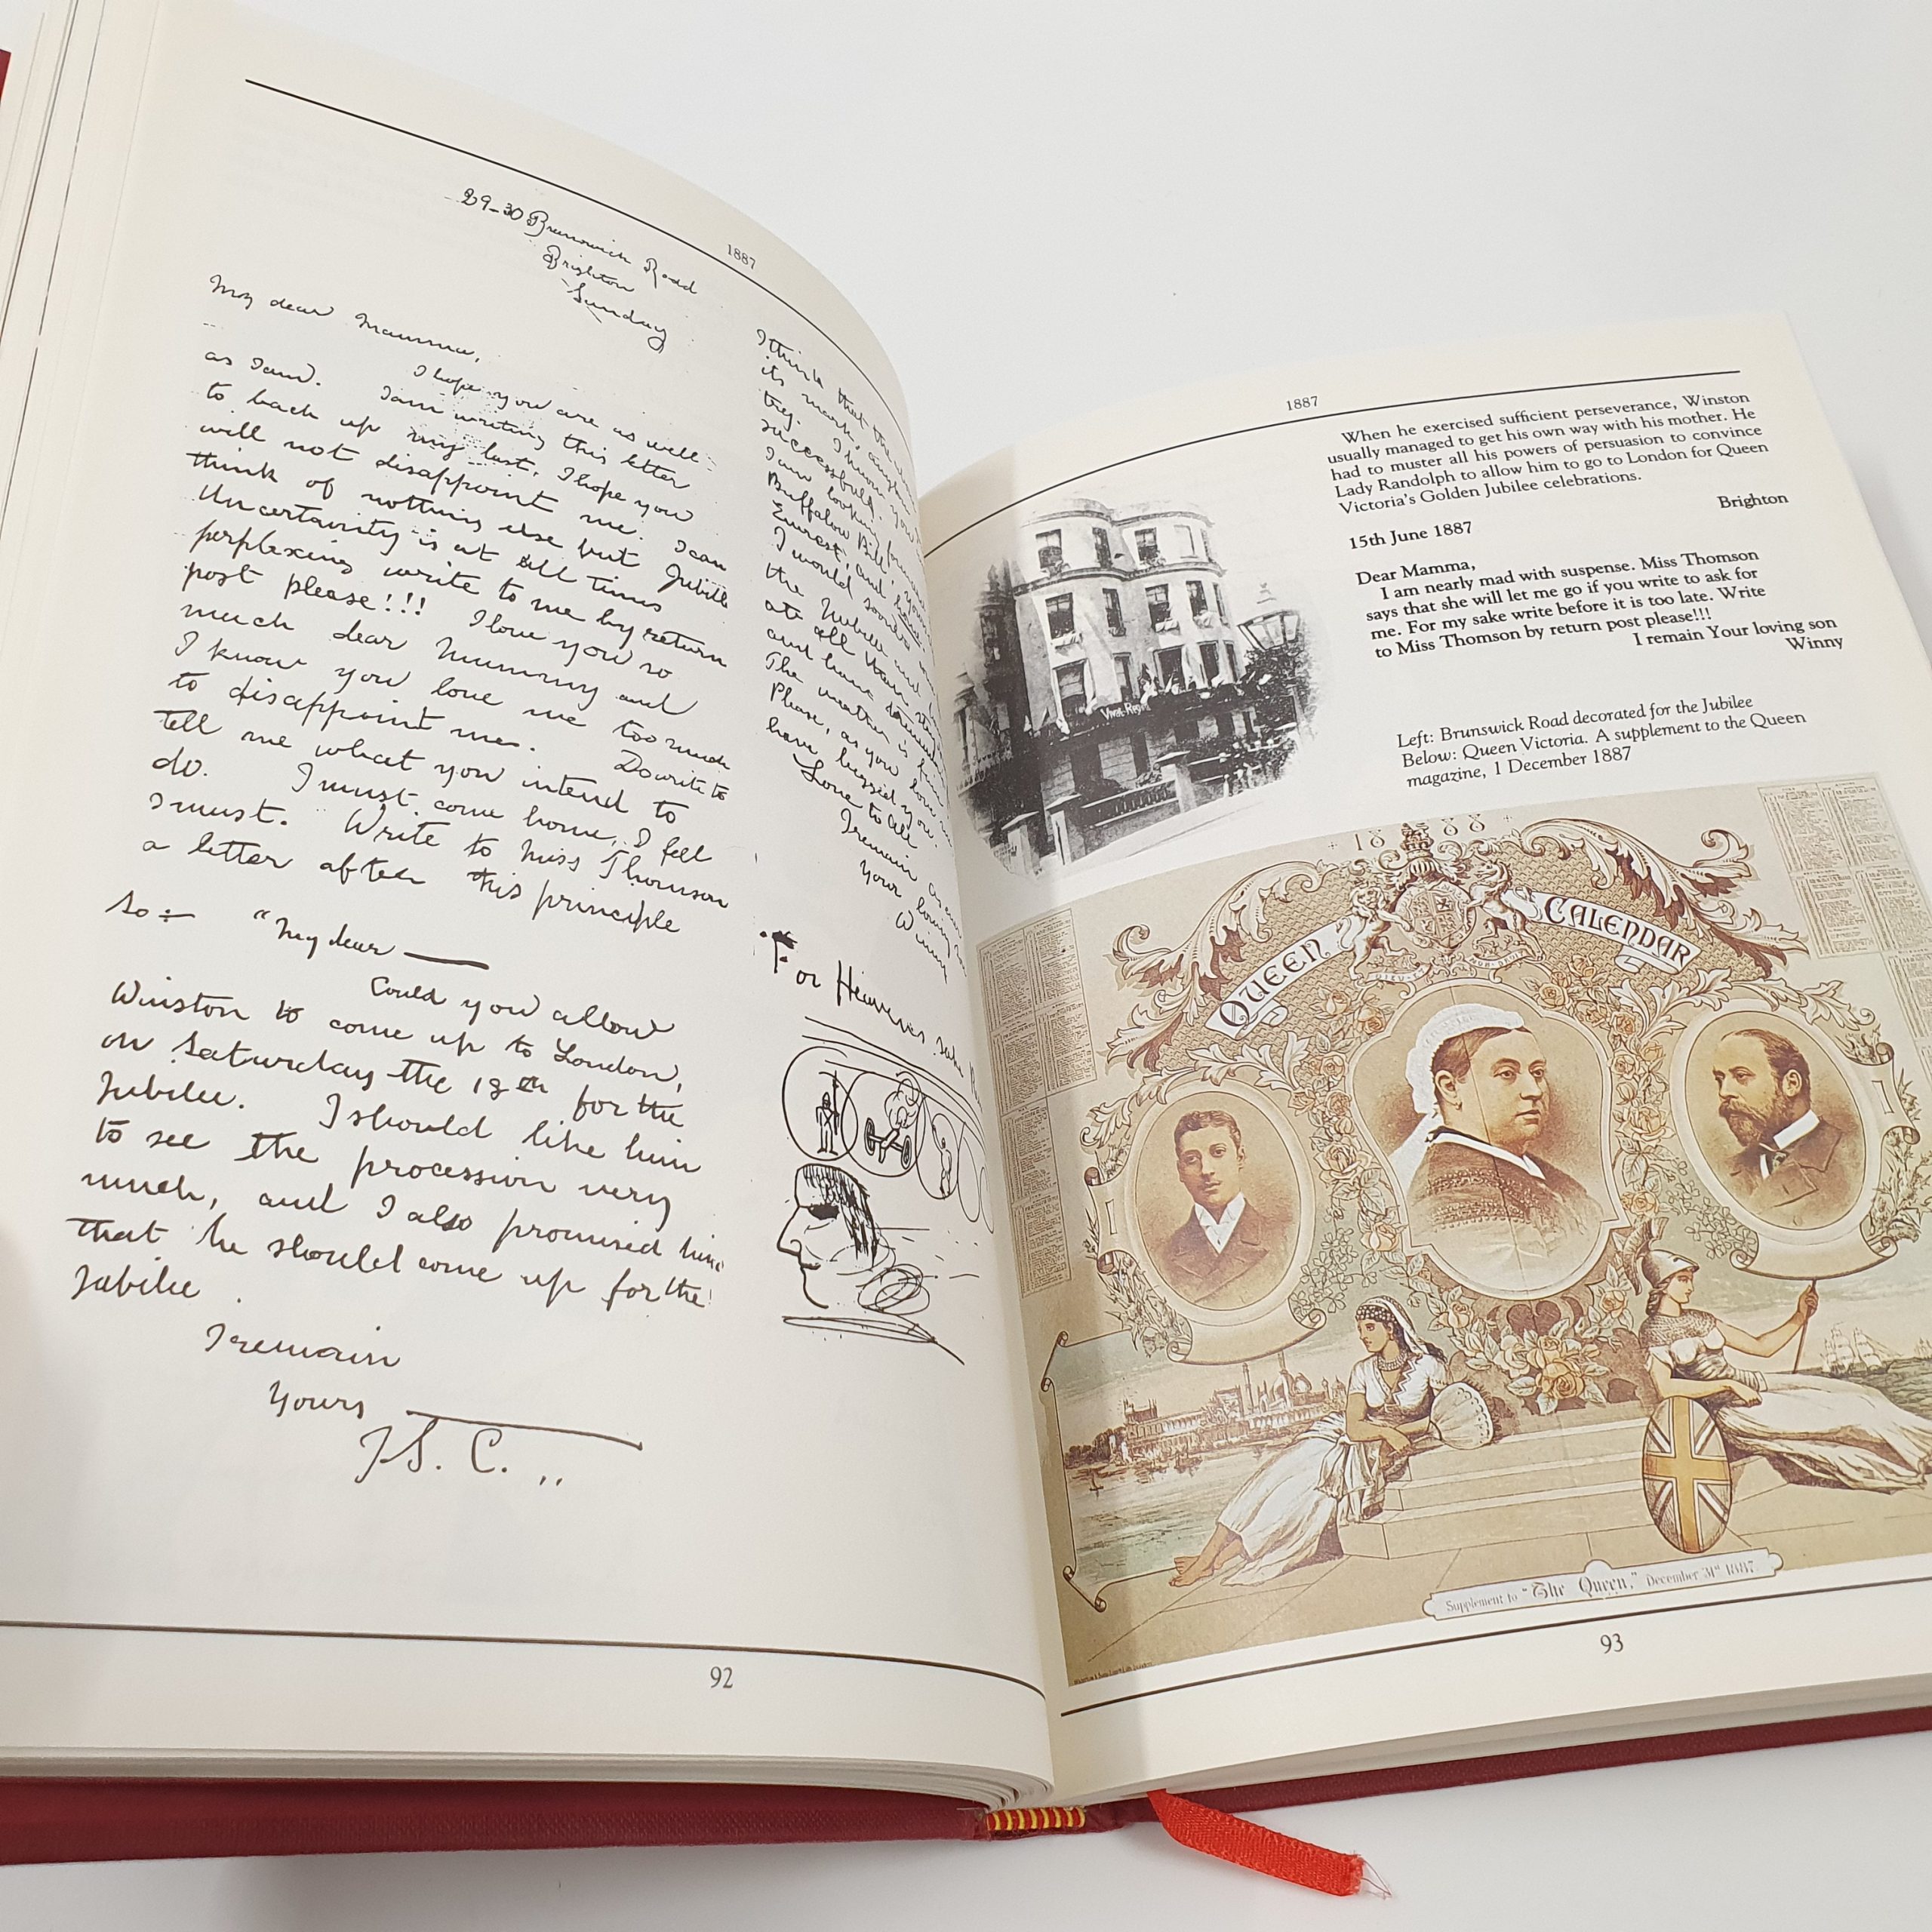 1887
29-30 Brunswick Road
Brighton
Sunday
My dear Mamma,
I hope you are as well
as I am. I am writing this letter
to back up my last. I hope you
will not disappoint me. I can
think of nothing else but Jubilee
Uncertainity is at all times
perplexing write to me by return
post please!!! I love you so
much dear Mummy and
I know you love me too much
to disappoint me. Do write to
tell me what you intend to
do. I must come home, I feel
I must. Write to Miss Thomson
a letter after this principle
so:- "My dear —
Could you allow
Winston to come up to London,
on Saturday the 18th for the
Jubilee. I should like him
to see the procession very
much, and I also promised him
that he should come up for the
Jubilee.
I remain
Yours —
J.S.C...
I think that the
its mark,
try. I know you
successful.
I am looking
Buffalow Bill,
Everest, and
I would sooner
the Jubilee and
at all
and have
The weather is fine
Please, as you love me
have begged you.
Love to all
I remain as
Your loving
Winny
For Heavens sake
92
1887
When he exercised sufficient perseverance, Winston
usually managed to get his own way with his mother. He
had to muster all his powers of persuasion to convince
Lady Randolph to allow him to go to London for Queen
Victoria's Golden Jubilee celebrations.
Brighton
15th June 1887
Dear Mamma,
I am nearly mad with suspense. Miss Thomson
says that she will let me go if you write to ask for
me. For my sake write before it is too late. Write
to Miss Thomson by return post please!!!
I remain Your loving son
Winny
Left: Brunswick Road decorated for the Jubilee
Below: Queen Victoria. A supplement to the Queen
magazine, 1 December 1887
1888
QUEEN CALENDAR
Supplement to "The Queen," December 31st 1887.
93